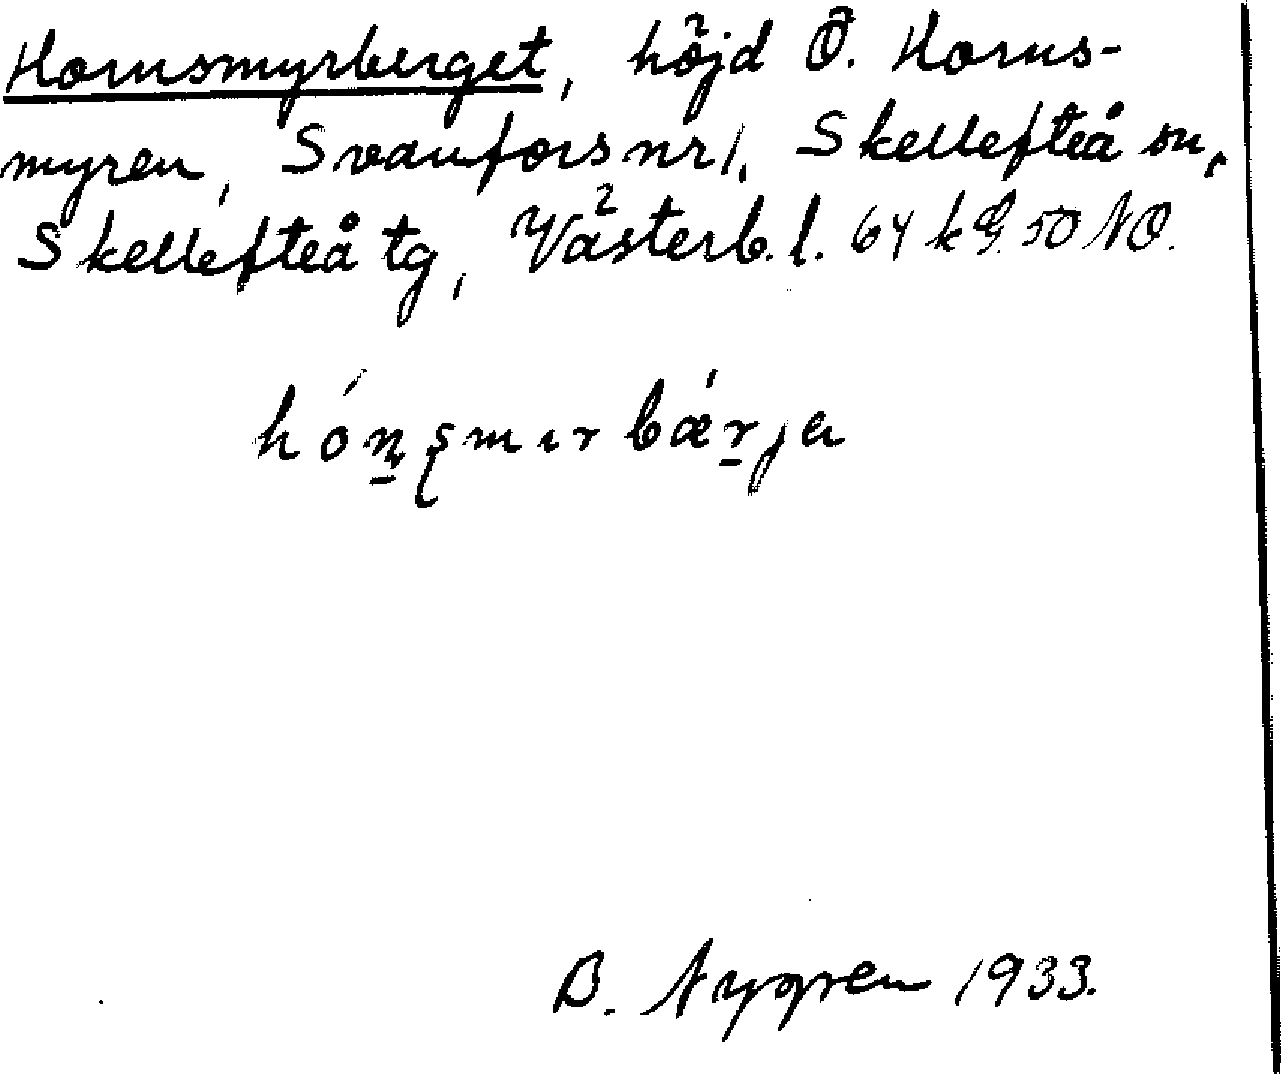 Hornsmyrberget, höjd Ö. Horns-
myren, Svanfors nr 1, Skellefteå sn,
Skellefteå tg, Västerb. l. 64 k G. 50 NO.
hón̠ʂmırbǽr̠ja
B. Nygren 1933.